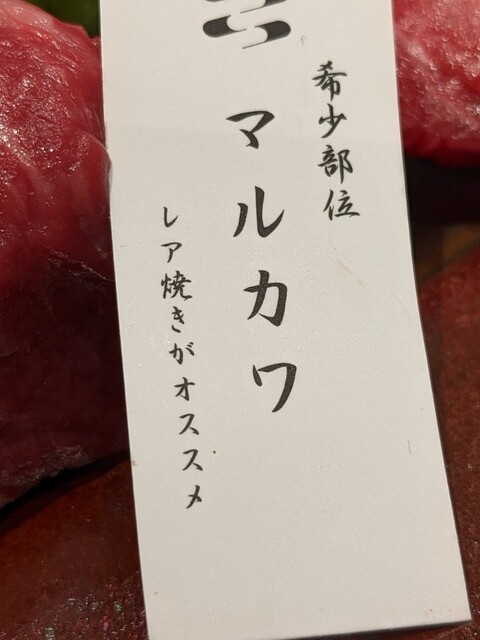 希少部位
マルカワ
レア焼きがオススメ